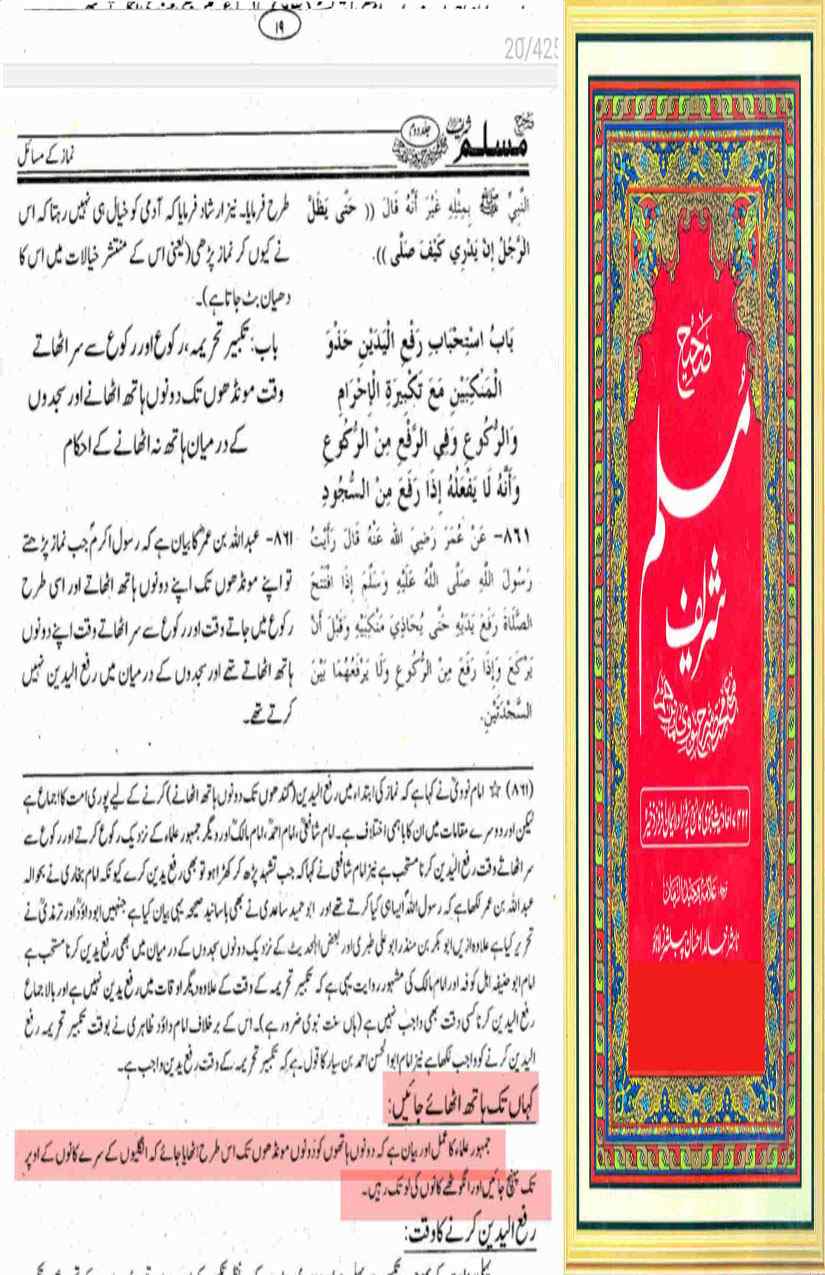 ۱۹
20/425
صحیح مسلم شریف جلد دوم
نماز کے مسائل
النَّبِيِّ ﷺ بِمِثْلِهِ غَيْرَ أَنَّهُ قَالَ (( حَتَّى يَظَلَّ
الرَّجُلُ إِنْ يَدْرِي كَيْفَ صَلَّى )).
طرح فرمایا۔ نیز ارشاد فرمایا کہ آدمی کو خیال ہی نہیں رہتا کہ اس
نے کیوں کر نماز پڑھی (یعنی اس کے منتشر خیالات میں اس کا
دھیان بٹ جاتا ہے)۔
بَابُ اسْتِحْبَابِ رَفْعِ الْيَدَيْنِ حَذْوَ
الْمَنْكِبَيْنِ مَعَ تَكْبِيرَةِ الْإِحْرَامِ
وَالرُّكُوعِ وَفِي الرَّفْعِ مِنَ الرُّكُوعِ
وَأَنَّهُ لَا يَفْعَلُهُ إِذَا رَفَعَ مِنَ السُّجُودِ
باب: تکبیر تحریمہ، رکوع اور رکوع سے سر اٹھاتے
وقت مونڈھوں تک دونوں ہاتھ اٹھانے اور سجدوں
کے درمیان ہاتھ نہ اٹھانے کے احکام
٨٦١- عَنْ عُمَرَ رَضِيَ اللهُ عَنْهُ قَالَ رَأَيْتُ
رَسُولَ اللَّهِ صَلَّى اللَّهُ عَلَيْهِ وَسَلَّمَ إِذَا افْتَتَحَ
الصَّلَاةَ رَفَعَ يَدَيْهِ حَتَّى يُحَاذِيَ مَنْكِبَيْهِ وَقَبْلَ أَنْ
يَرْكَعَ وَإِذَا رَفَعَ مِنَ الرُّكُوعِ وَلَا يَرْفَعُهُمَا بَيْنَ
السَّجْدَتَيْنِ.
۸۶۱- عبداللہ بن عمرؓ کا بیان ہے کہ رسول اکرمؐ جب نماز پڑھتے
تو اپنے مونڈھوں تک اپنے دونوں ہاتھ اٹھاتے اور اسی طرح
رکوع میں جاتے وقت اور رکوع سے سر اٹھاتے وقت اپنے دونوں
ہاتھ اٹھاتے تھے اور سجدوں کے درمیان میں رفع الیدین نہیں
کرتے تھے۔
(۸۶۱) ☆ امام نوویؒ نے کہا ہے کہ نماز کی ابتداء میں رفع الیدین (کندھوں تک دونوں ہاتھ اٹھانے) کرنے کے لیے پوری امت کا اجماع ہے
لیکن اور دوسرے مقامات میں ان کا باہمی اختلاف ہے۔ امام شافعیؒ، امام احمدؒ، امام مالکؒ اور دیگر جمہور علماء کے نزدیک رکوع کرتے اور رکوع سے
سر اٹھاتے وقت رفع الیدین کرنا مستحب ہے نیز امام شافعیؒ نے کہا کہ جب تشہد پڑھ کر کھڑا ہو تو بھی رفع یدین کرے کیونکہ امام بخاریؒ نے بحوالہ
عبداللہ بن عمرؓ لکھا ہے کہ رسول اللہؐ ایسا ہی کیا کرتے تھے اور ابو حمید ساعدیؓ نے بھی باسانید صحیحہ یہی بیان کیا ہے جنہیں ابوداؤدؒ اور ترمذیؒ نے
تحریر کیا ہے علاوہ ازیں ابوبکر بن منذر ابو علی طبری اور بعض اہلحدیث کے نزدیک دونوں سجدوں کے درمیان میں بھی رفع یدین کرنا مستحب ہے
امام ابو حنیفہ اہل کوفہ اور امام مالک کی مشہور روایت یہی ہے کہ تکبیر تحریمہ کے وقت کے علاوہ دیگر اوقات میں رفع یدین نہیں ہے اور بالاجماع
رفع الیدین کرنا کسی وقت بھی واجب نہیں ہے (ہاں سنت نبوی ضرور ہے)۔ اس کے برخلاف امام داؤد ظاہری نے بوقت تکبیر تحریمہ رفع
الیدین کرنے کو واجب لکھا ہے نیز امام ابوالحسن احمد بن سیار کا قول۔ ہے کہ تکبیر تحریمہ کے وقت رفع یدین واجب ہے۔
کہاں تک ہاتھ اٹھائے جائیں:
جمہور علماء کا عمل اور بیان ہے کہ دونوں ہاتھوں کو دونوں مونڈھوں تک اس طرح اٹھایا جائے کہ انگلیوں کے سرے کانوں کے اوپر
تک پہنچ جائیں اور انگوٹھے کانوں کی لو تک رہیں۔
رفع الیدین کرنے کا وقت:
صحیح
مسلم
شریف